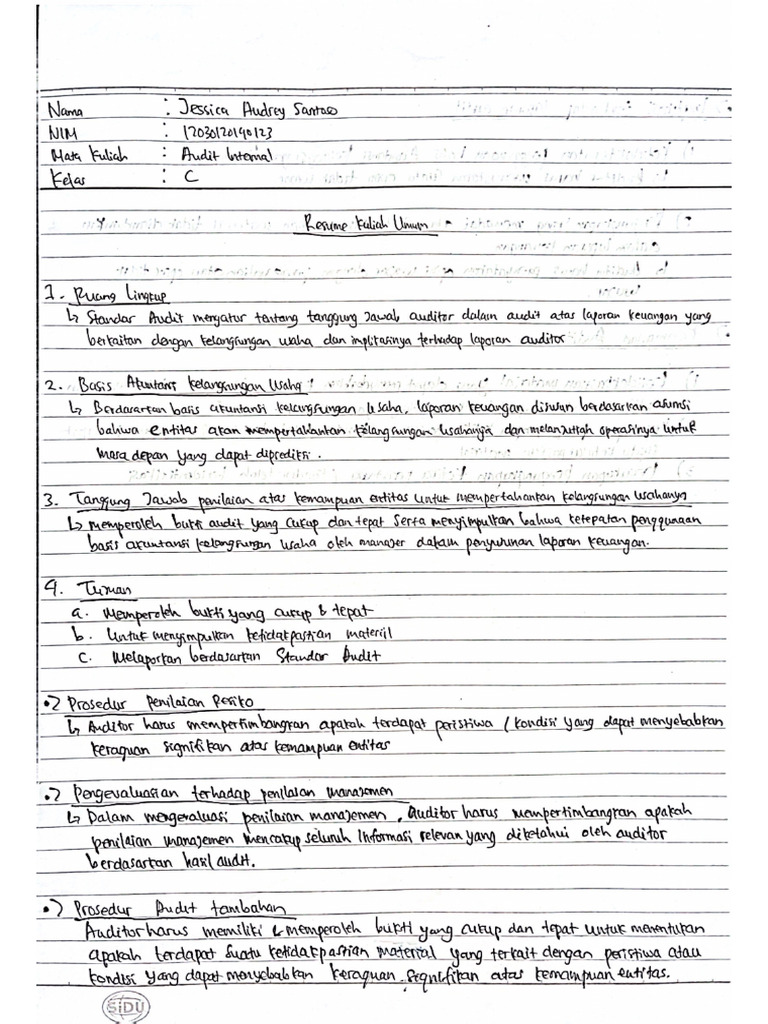 Nama : Jessica Audrey Santoso
NIM : 12030120140123
Mata Kuliah : Audit Internal
Kelas : C
Resume Kuliah Umum
1. Ruang Lingkup
↳ Standar Audit mengatur tentang tanggung jawab auditor dalam audit atas laporan keuangan yang
berkaitan dengan kelangsungan usaha dan implikasinya terhadap laporan auditor
2. Basis Akuntansi Kelangsungan Usaha
↳ Berdasarkan basis akuntansi kelangsungan usaha, laporan keuangan disusun berdasarkan asumsi
bahwa entitas akan mempertahankan kelangsungan usahanya dan melanjutkan operasinya untuk
masa depan yang dapat diprediksi.
3. Tanggung Jawab penilaian atas kemampuan entitas untuk mempertahankan kelangsungan usahanya
↳ memperoleh bukti audit yang cukup dan tepat serta menyimpulkan bahwa ketepatan penggunaan
basis akuntansi kelangsungan usaha oleh manajer dalam penyusunan laporan keuangan.
4. Tujuan
a. Memperoleh bukti yang cukup & tepat
b. Untuk menyimpulkan ketidakpastian materiil
c. Melaporkan berdasarkan Standar Audit
•) Prosedur Penilaian Resiko
↳ Auditor harus mempertimbangkan apakah terdapat peristiwa / kondisi yang dapat menyebabkan
keraguan signifikan atas kemampuan entitas
•) Pengevaluasian terhadap penilaian manajemen
↳ Dalam mengevaluasi penilaian manajemen, Auditor harus mempertimbangkan apakah
penilaian manajemen mencakup seluruh informasi relevan yang diketahui oleh auditor
berdasarkan hasil audit.
•) Prosedur Audit tambahan
Auditor harus memiliki & memperoleh bukti yang cukup dan tepat untuk menentukan
apakah terdapat suatu ketidakpastian material yang terkait dengan peristiwa atau
kondisi yang dapat menyebabkan keraguan signifikan atas kemampuan entitas.
SiDU